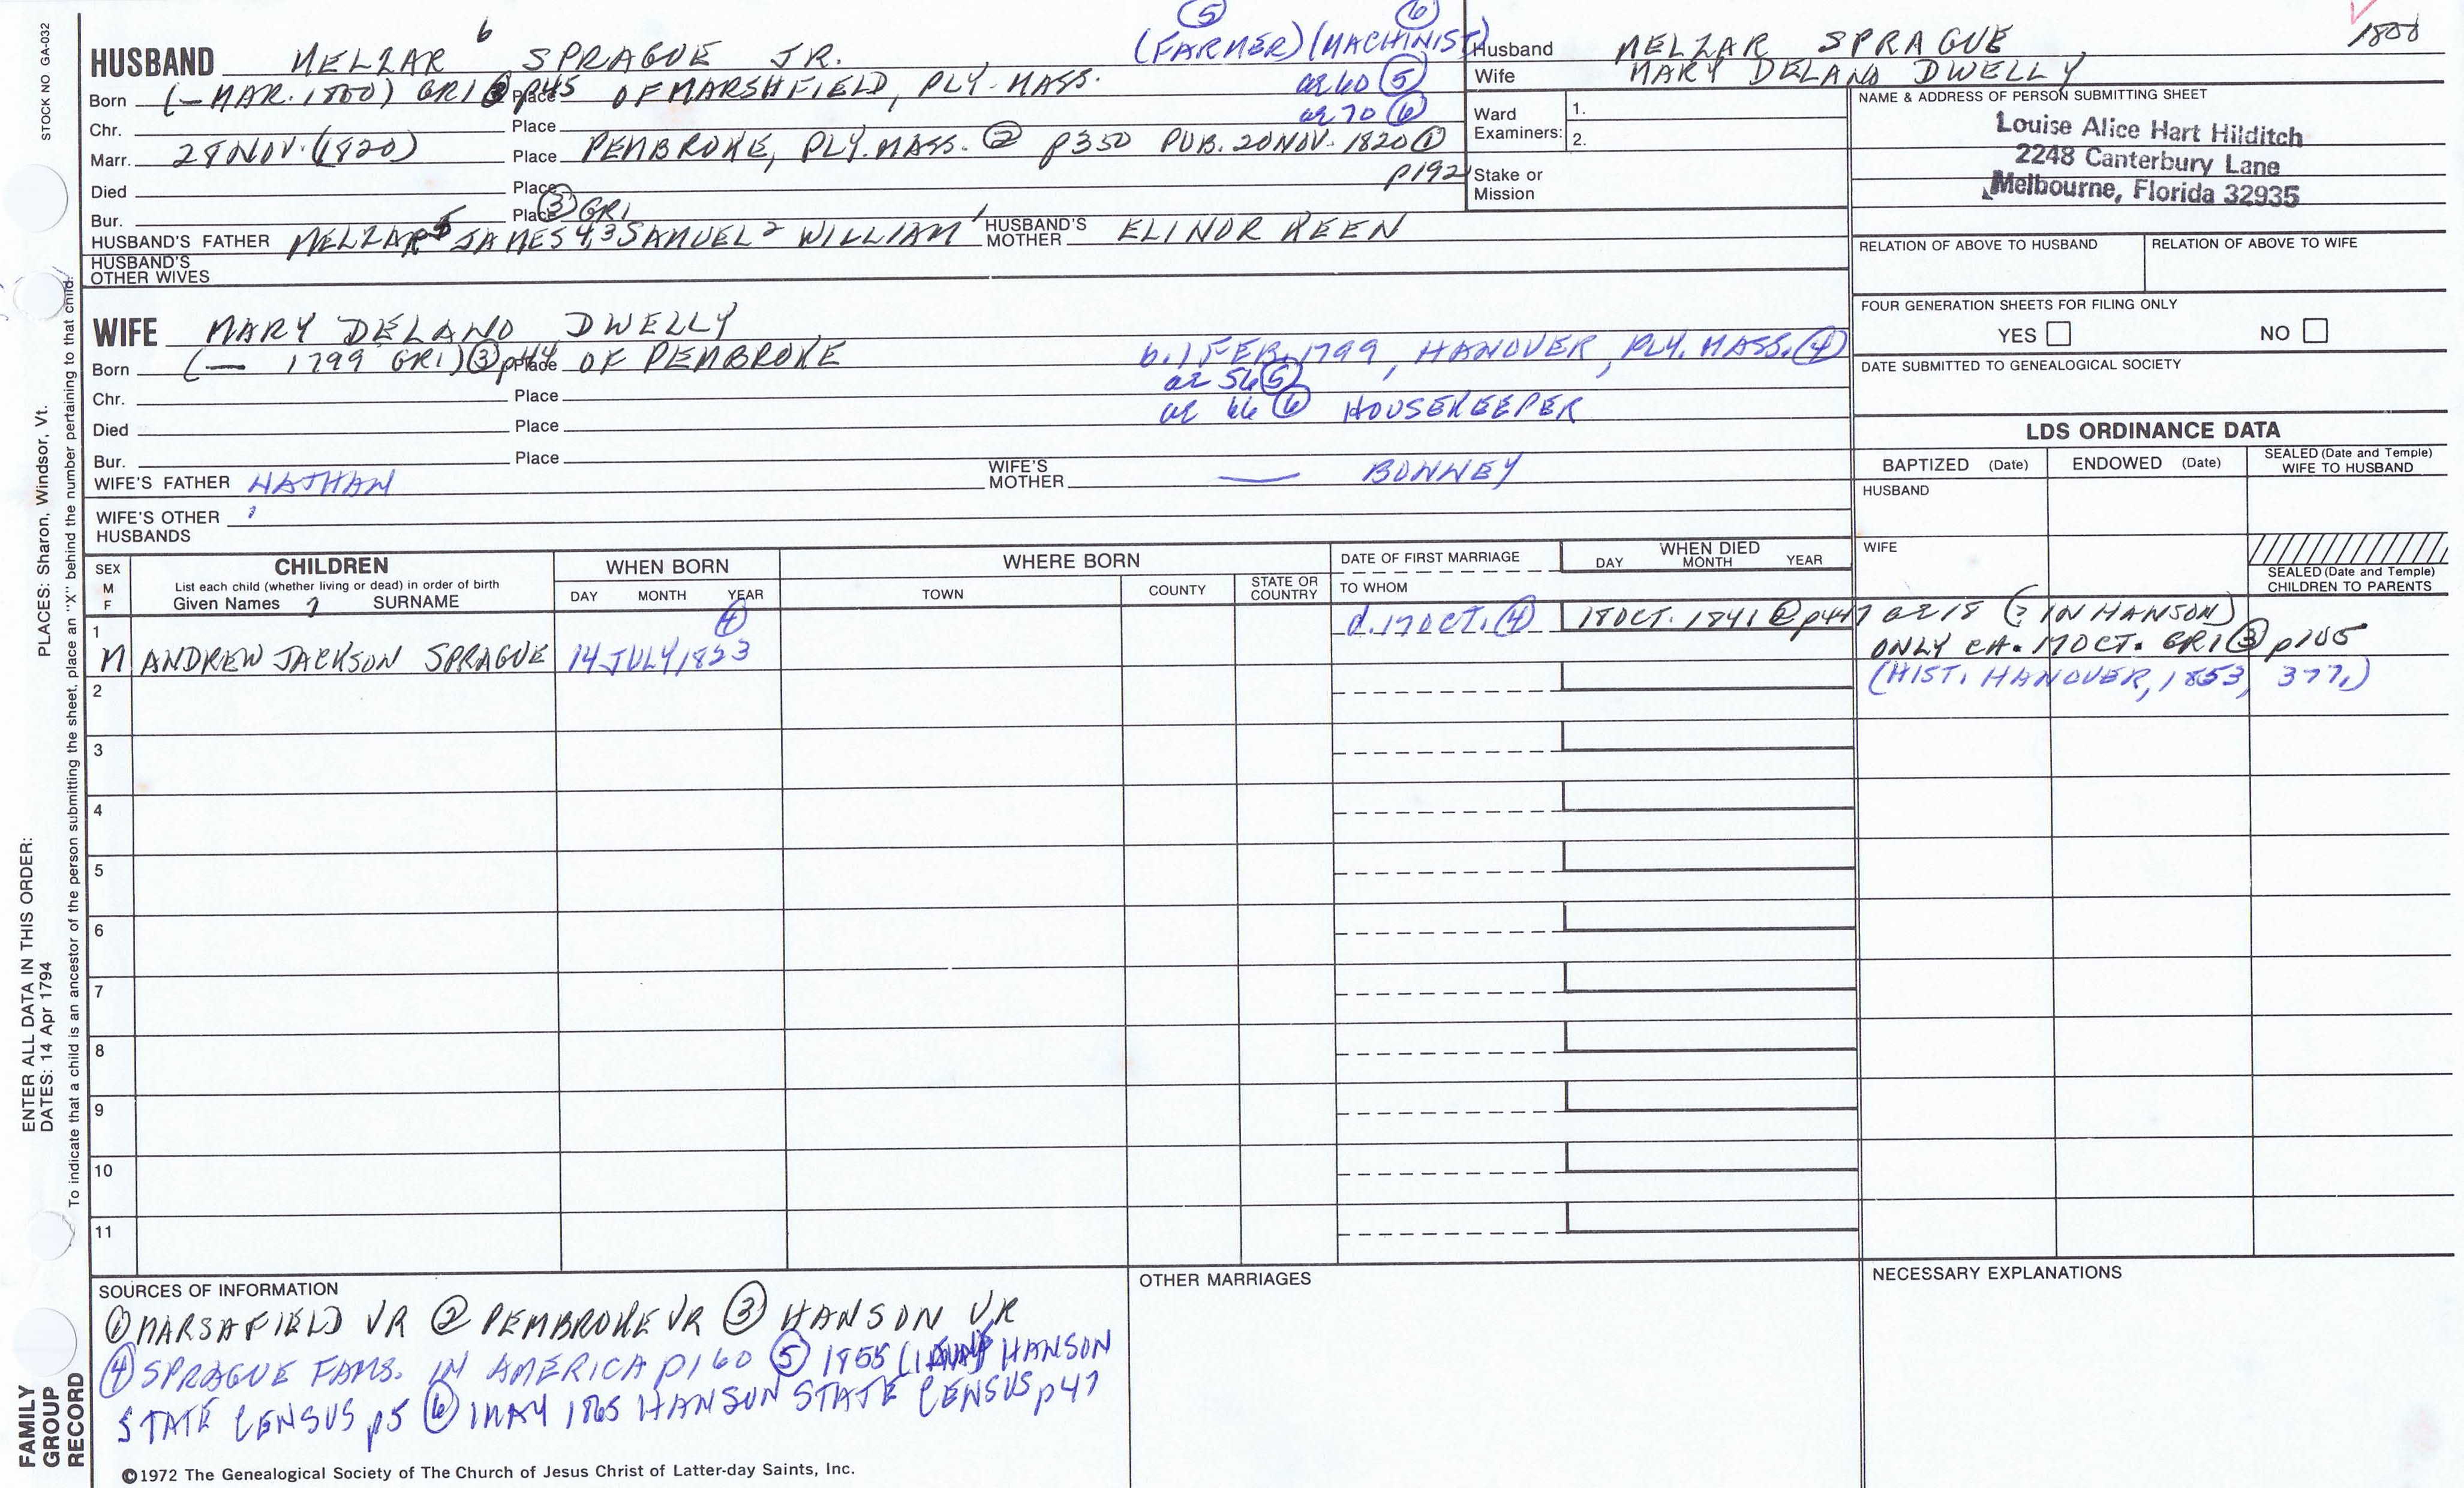 STOCK NO GA-032
PLACES: Sharon, Windsor, Vt.
ENTER ALL DATA IN THIS ORDER:
DATES: 14 Apr 1794
To indicate that a child is an ancestor of the person submitting the sheet, place an "X" behind the number pertaining to that child.
FAMILY
GROUP
RECORD
⑤ ⑥
(FARMER) (MACHINIST)
HUSBAND MELZAR 6 SPRAGUE JR.
Born (- MAR. 1800) GR1 ③ p45 Place OF MARSHFIELD, PLY. MASS. ae 60 ⑤
ae 70 ⑥
Chr. Place
Marr. 28 NOV. (1820) Place PEMBROKE, PLY. MASS. ② p350 PUB. 20 NOV. 1820 ①
p192
Died Place
Bur. Place ③ GR1
HUSBAND'S FATHER MELZAR 5 JAMES 4,3 SAMUEL 2 WILLIAM 1 HUSBAND'S MOTHER ELINOR KEEN
HUSBAND'S
OTHER WIVES
WIFE MARY DELAND DWELLY
Born (— 1799 GR1) ③ p44 Place OF PEMBROKE b. 1 FEB. 1799, HANOVER, PLY. MASS. ④
ae 56 ⑤
Chr. Place ae 66 ⑥ HOUSEKEEPER
Died Place
Bur. Place
WIFE'S FATHER NATHAN WIFE'S MOTHER — BONNEY
WIFE'S OTHER
HUSBANDS
Husband MELZAR SPRAGUE 1800
Wife MARY DELAND DWELLY
Ward 1.
Examiners: 2.
Stake or
Mission
NAME & ADDRESS OF PERSON SUBMITTING SHEET
Louise Alice Hart Hilditch
2248 Canterbury Lane
Melbourne, Florida 32935
RELATION OF ABOVE TO HUSBAND RELATION OF ABOVE TO WIFE
FOUR GENERATION SHEETS FOR FILING ONLY
YES NO
DATE SUBMITTED TO GENEALOGICAL SOCIETY
LDS ORDINANCE DATA
BAPTIZED (Date) ENDOWED (Date) SEALED (Date and Temple) WIFE TO HUSBAND
HUSBAND
WIFE
SEALED (Date and Temple)
CHILDREN TO PARENTS
SEX
M
F
CHILDREN
List each child (whether living or dead) in order of birth
Given Names 7 SURNAME
WHEN BORN
DAY MONTH YEAR
WHERE BORN
TOWN COUNTY STATE OR COUNTRY
DATE OF FIRST MARRIAGE
TO WHOM
WHEN DIED
DAY MONTH YEAR
1 ④ d. 17 OCT. ④ 18 OCT. 1841 ② p447 ae 18 (? IN HANSON)
M ANDREW JACKSON SPRAGUE 14 JULY 1823 ONLY CA. 17 OCT. GR1 ③ p105
2 (HIST. HANOVER, 1853, 377.)
3
4
5
6
7
8
9
10
11
SOURCES OF INFORMATION
① MARSHFIELD VR ② PEMBROKE VR ③ HANSON VR
④ SPRAGUE FAMS. IN AMERICA p160 ⑤ 1855 HANSON
STATE CENSUS p5 ⑥ 1 MAY 1865 HANSON STATE CENSUS p47
OTHER MARRIAGES
NECESSARY EXPLANATIONS
©1972 The Genealogical Society of The Church of Jesus Christ of Latter-day Saints, Inc.